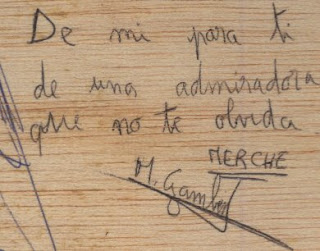 De mi para ti
de una admiradora
que no te olvida
MERCHE
M. Gamboa